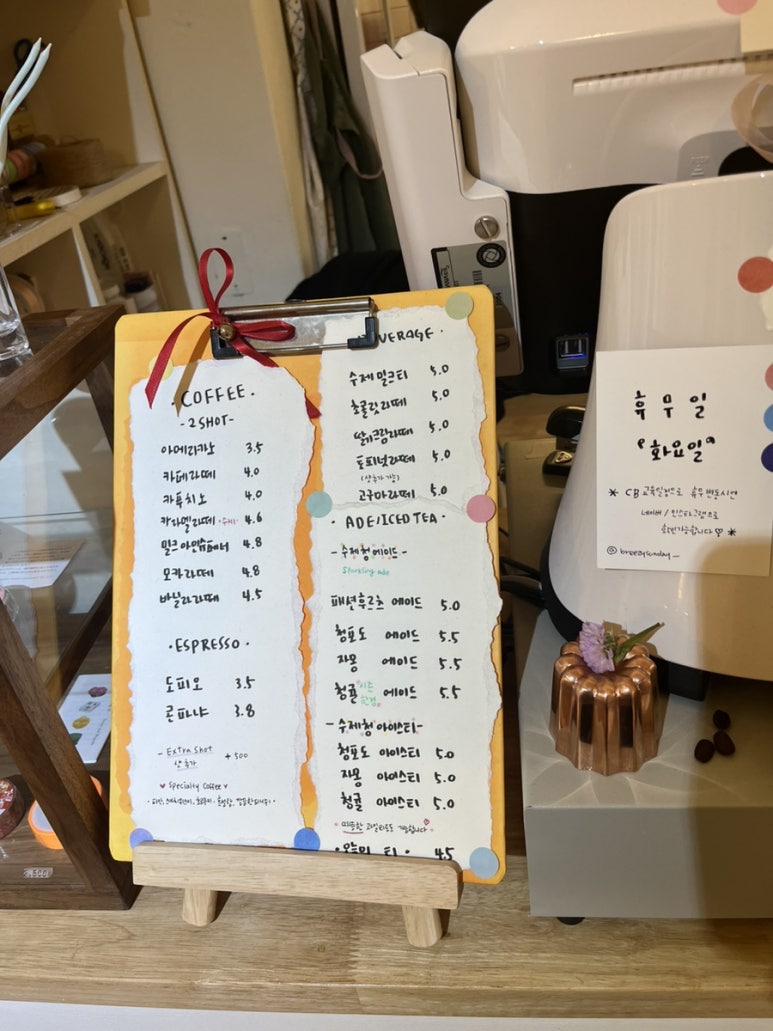 · COFFEE ·
- 2SHOT -
아메리카노 3.5
카페라떼 4.0
카푸치노 4.0
카라멜라떼 4.6
밀크아인슈페너 4.8
모카라떼 4.8
바닐라라떼 4.5
· ESPRESSO ·
도피오 3.5
콘파냐 3.8
- Extra shot
샷추가 +500
♥ Specialty Coffee ♥
VERAGE ·
수제밀크티 5.0
초콜릿라떼 5.0
딸기크림라떼 5.0
토피넛라떼 5.0
(샷추가 가능)
고구마라떼 5.0
· ADE/ICED TEA ·
- 수제청에이드 -
Sparkling ade
패션후르츠 에이드 5.0
청포도 에이드 5.5
자몽 에이드 5.5
청귤 시즌한정 에이드 5.5
- 수제청아이스티 -
청포도 아이스티 5.0
자몽 아이스티 5.0
청귤 아이스티 5.0
따뜻한 과일티로도 가능합니다
· 오늘의 티 · 4.5
휴 무 일
"화요일"
* CB교육일정으로 휴무변동시엔
네이버/인스타그램으로
확인가능합니다♡ *
@breezysunday_
2,500